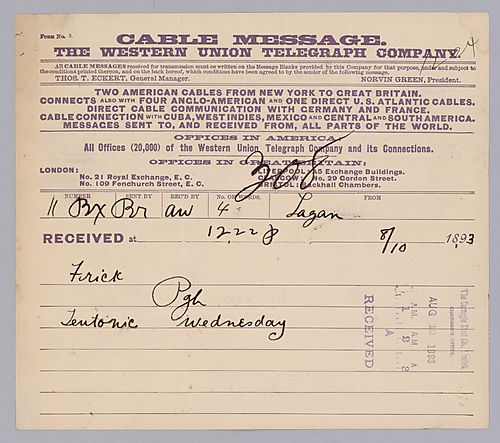 FORM No. 2.
CABLE MESSAGE.
THE WESTERN UNION TELEGRAPH COMPANY.
ALL CABLE MESSAGES received for transmission must be written on the Message Blanks provided by this Company for that purpose, under and subject to
the conditions printed thereon, and on the back hereof, which conditions have been agreed to by the sender of the following message.
THOS. T. ECKERT, General Manager. NORVIN GREEN, President.
TWO AMERICAN CABLES FROM NEW YORK TO GREAT BRITAIN.
CONNECTS ALSO WITH FOUR ANGLO-AMERICAN AND ONE DIRECT U.S. ATLANTIC CABLES.
DIRECT CABLE COMMUNICATION WITH GERMANY AND FRANCE.
CABLE CONNECTION WITH CUBA, WEST INDIES, MEXICO AND CENTRAL AND SOUTH AMERICA.
MESSAGES SENT TO, AND RECEIVED FROM, ALL PARTS OF THE WORLD.
OFFICES IN AMERICA:
All Offices (20,000) of the Western Union Telegraph Company and its Connections.
OFFICES IN GREAT BRITAIN:
LONDON: LIVERPOOL: A5 Exchange Buildings.
No. 21 Royal Exchange, E. C. GLASGOW: No. 29 Gordon Street.
No. 109 Fenchurch Street, E. C. BRISTOL: Backhall Chambers.
308
NUMBER SENT BY REC'D BY No. OF WORDS. FROM
11 Bx Br aw 4 Lagan
RECEIVED at 12.22 P 8/10 1893
Frick
Pgh
Teutonic Wednesday
AUG 10 1893
RECEIVED